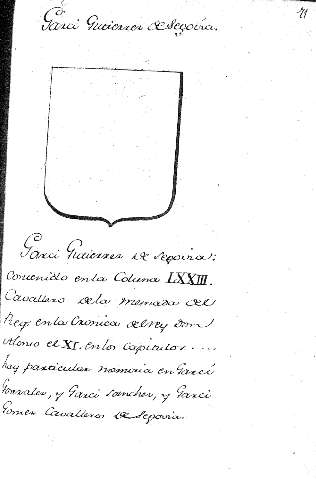 71
Garci Gutierrez de Segovia.
Garci Gutierrez de Segovia;
Contenido en la Coluna LXXIII.
Cavallero de la mesnada del
Rey en la Cronica del rey don
Alonso el XI. en los Capitulos ....
hay particular memoria en Garci
Gonzalez, y Garci Sanchez, y Garci
Gomez Cavalleros de Segovia.